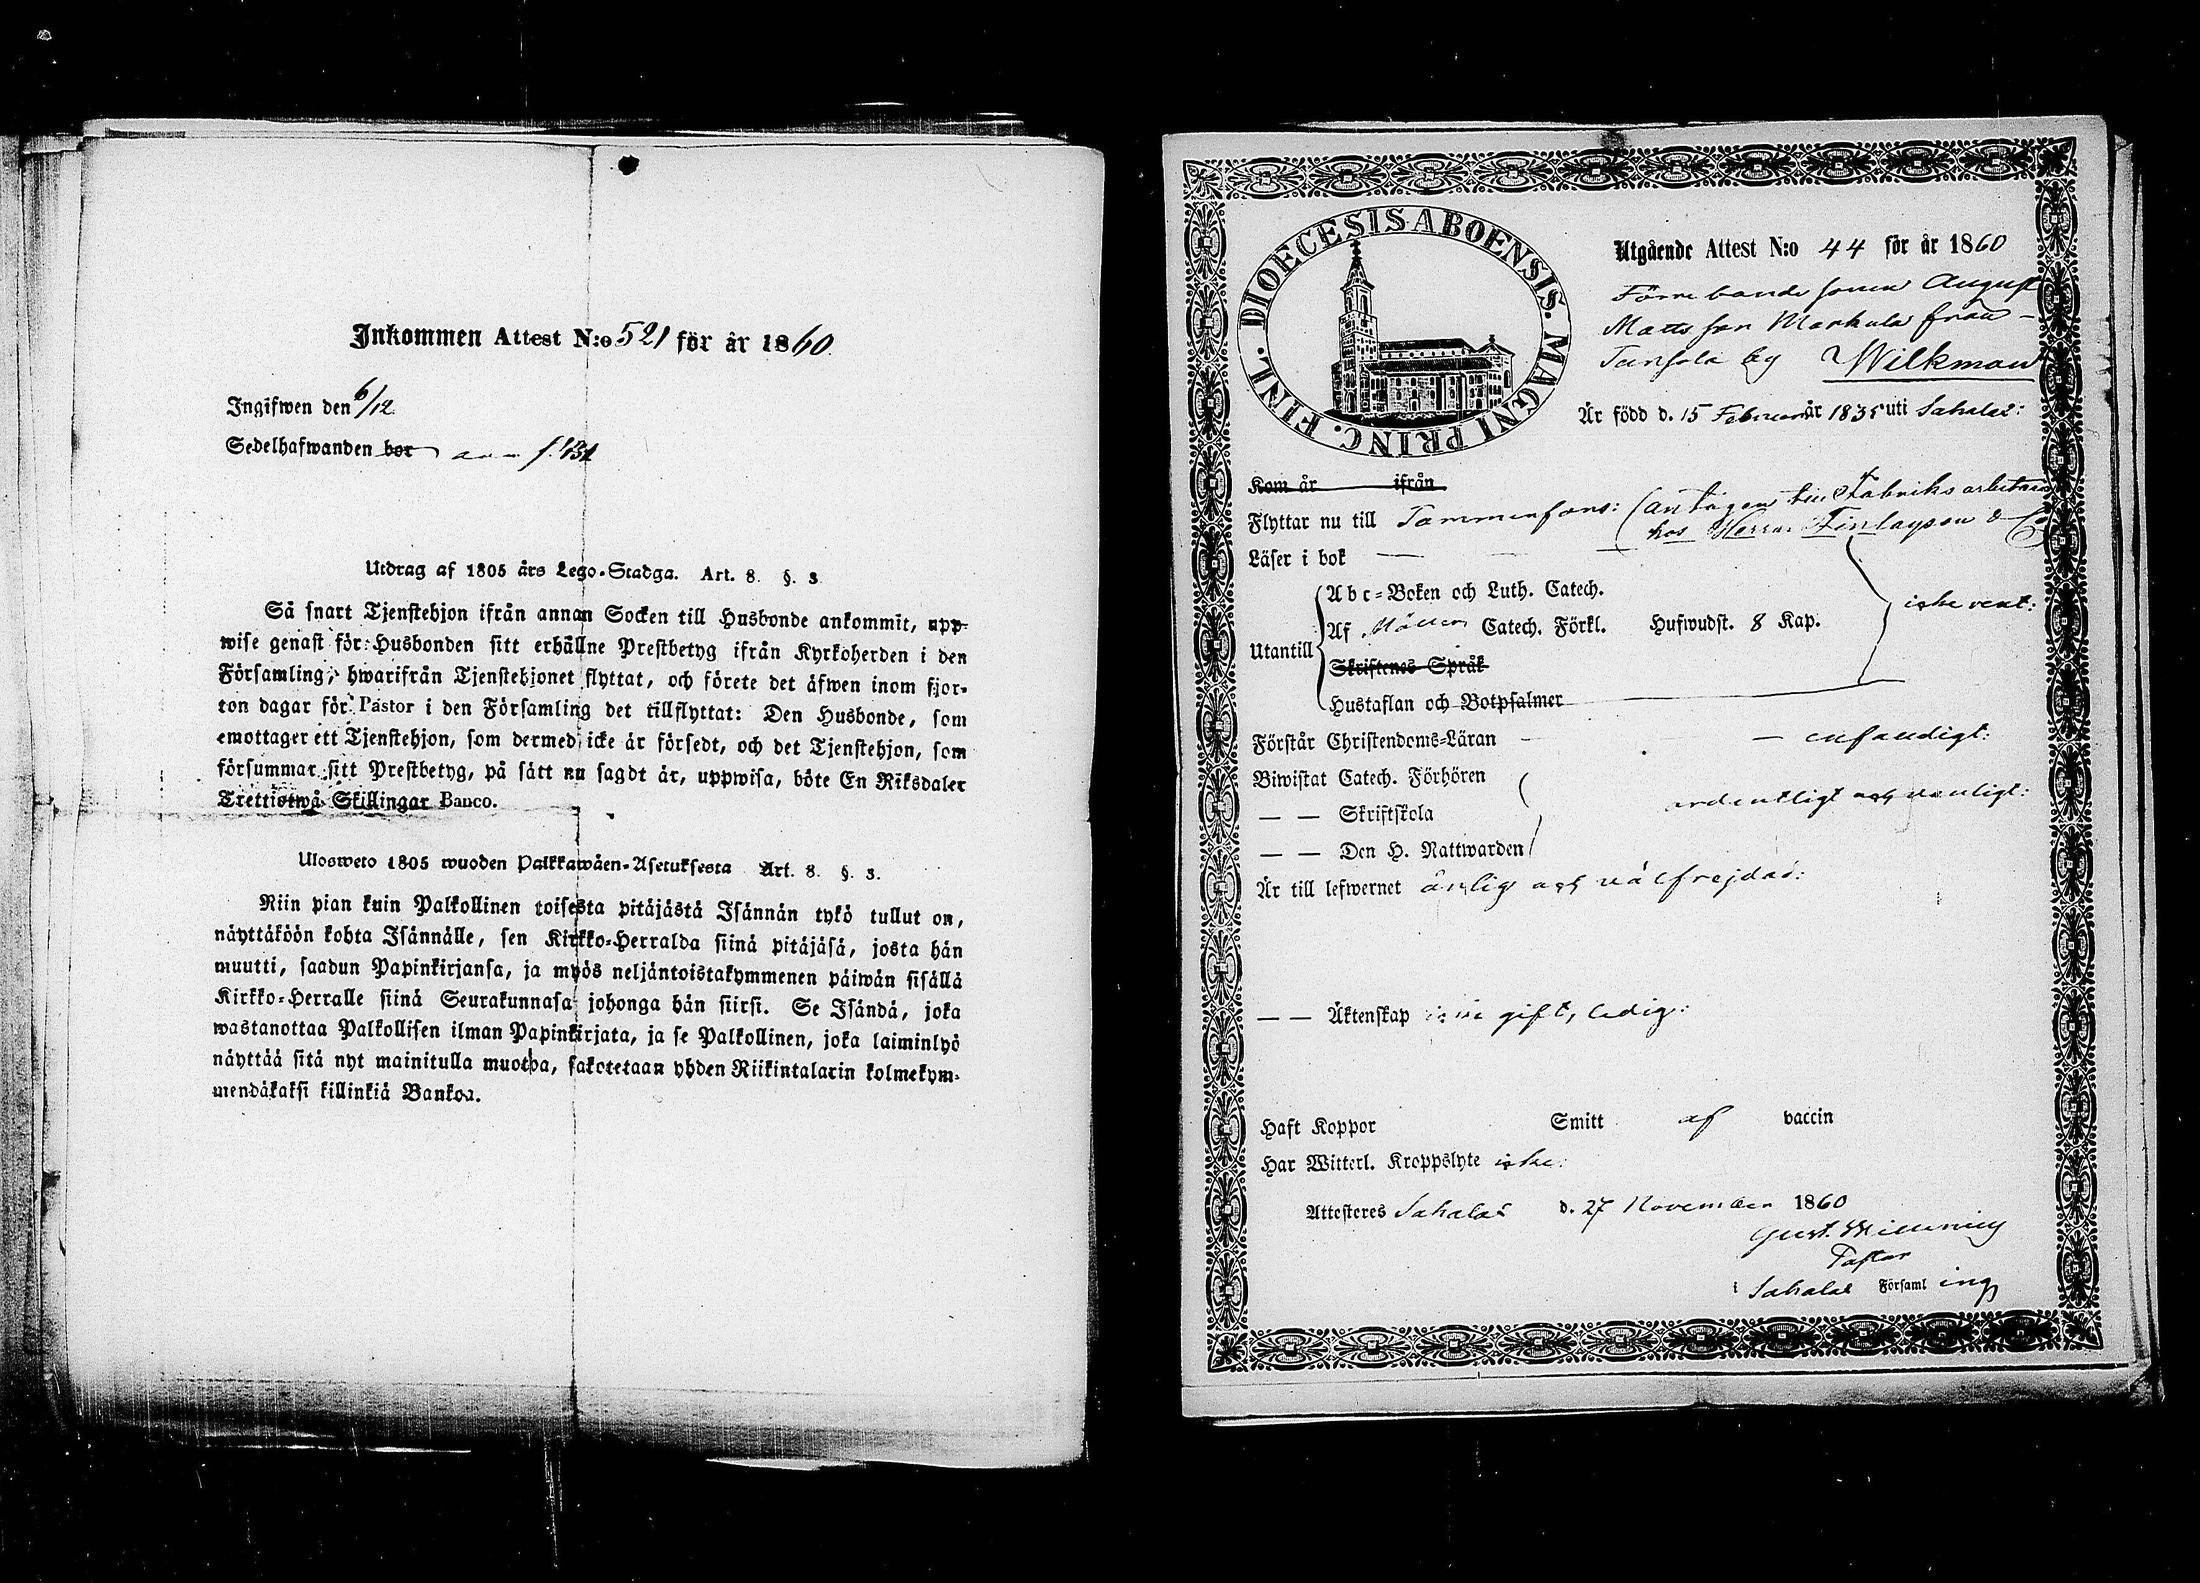 Inkommen Attest N:o 521 för år 1860.
Ingifwen den 6/12
Sedelhafwanden bor
Utdrag af 1805 års Lego-Stadga. Art. 8. §. 3.
Så snart Tjenstehjon ifrån annan Socken till Husbonde ankommit, upp-
wise genast för Husbonden sitt erhållne Prestbetyg ifrån Kyrkoherden i den
Församling, hwarifrån Tjenstehjonet flyttat, och förete det äfwen inom fjor-
ton dagar för Pastor i den Församling det tillflyttat: Den Husbonde, som
emottager ett Tjenstehjon, som dermed icke är försedt, och det Tjenstehjon, som
försummar sitt Prestbetyg, på sätt nu sagdt är, uppwisa, böte En Riksdaler
Trettiotwå Skillingar Banco.
Ulosweto 1805 wuoden Palkkawäen-Asetuksesta Art. 8. §. 3.
Niin pian kuin Palkollinen toisesta pitäjästä Isännän tykö tullut on,
näyttäköön kohta Isännälle, sen Kirkko-Herralda siinä pitäjäsä, josta hän
muutti, saadun Papinkirjansa, ja myös neljäntoistakymmenen päiwän sisällä
Kirkko-Herralle siinä Seurakunnasa johonga hän siirsi. Se Isändä, joka
wastanottaa Palkollisen ilman Papinkirjata, ja se Palkollinen, joka laiminlyö
näyttää sitä nyt mainitulla muotoa, sakotetaan yhden Riikintalarin kolmekym-
mendäkaksi killinkiä Bankoa.
DIOECESIS ABOENSIS. MAGNI PRINC. FINL.
Utgående Attest N:o 44 för år 1860
August
Mattsson Markula från
by Wilkman
Är född d. 15 Februari år 1835 uti Sahalax:
Kom år ifrån
Flyttar nu till Tammerfors: (antagen till Fabriks arbetare
hos Herrar Finlayson & Co
Läser i bok
Abc-Boken och Luth. Catech.
Utantill Af Möllers Catech. Förkl. Hufwudst. 8 Kap. icke vent:
Skriftenes Språk
Hustaflan och Botpsalmer
Förstår Christendoms-Läran enfaldigt:
Biwistat Catech. Förhören
— — Skriftskola ordentligt och vanligt:
— — Den H. Nattwarden
Är till lefwernet ärlig och välfrejdad:
— — Äktenskap icke gift, ledig:
Haft Koppor Smitt af vaccin
Har Witterl. Kroppslyte icke:
Attesteres Sahalax d. 27 November 1860
Gust.
Pastor
i Sahalax Församling